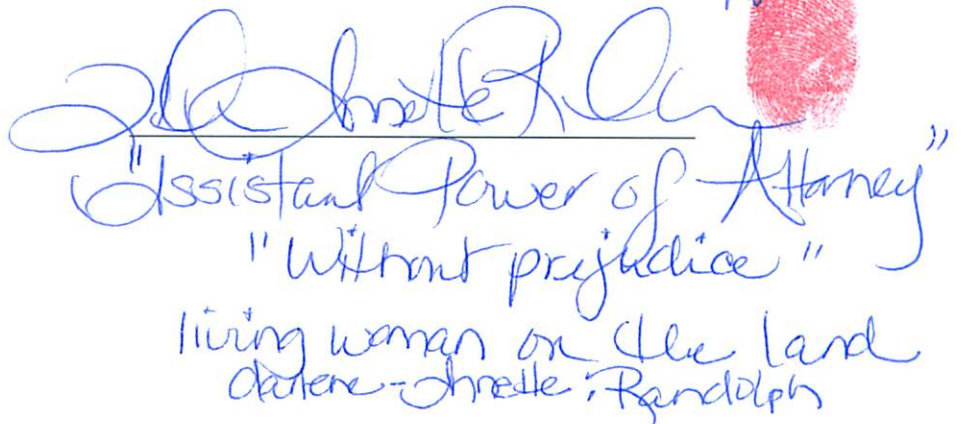 "Assistant Power of Attorney"
"Without prejudice"
living woman on the land
darlene-Annette: Randolph